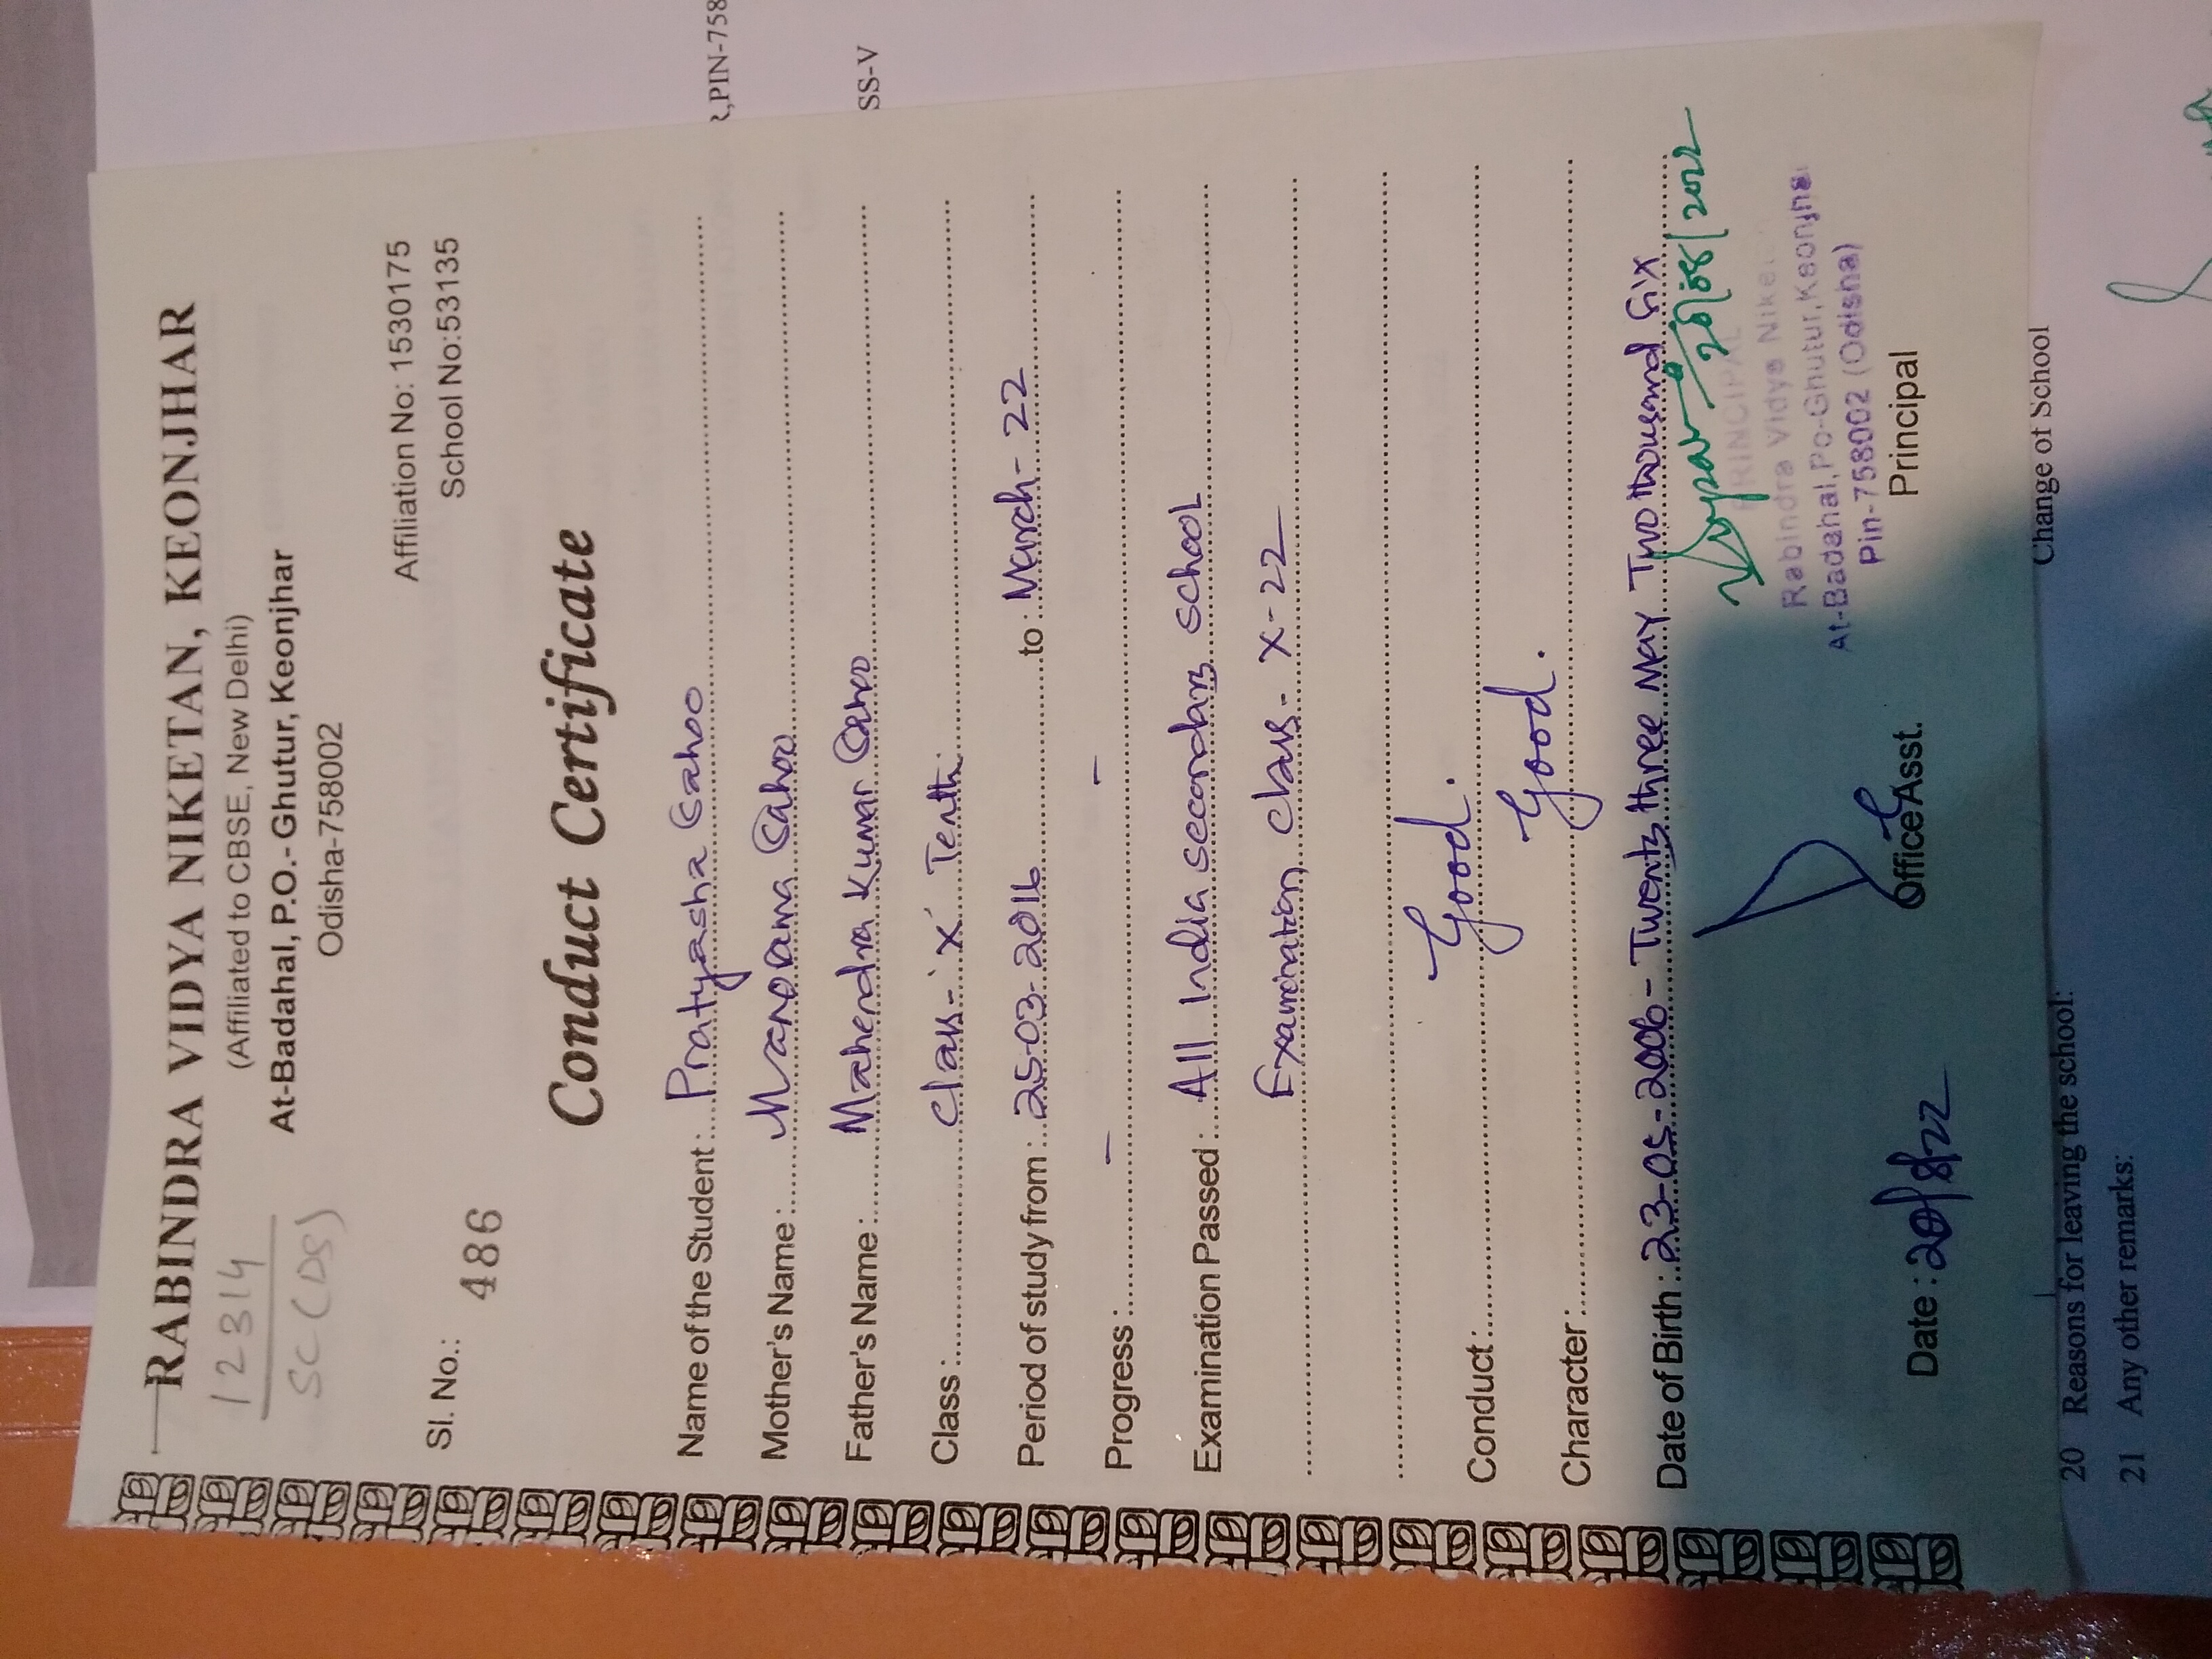 RABINDRA VIDYA NIKETAN, KEONJHAR
(Affiliated to CBSE, New Delhi)
At-Badahal, P.O.- Ghutur, Keonjhar
Odisha-758002
12314
SC (DS)
Affiliation No: 1530175
School No:53135
Sl. No.: 486
Conduct Certificate
Name of the Student: Pratyasha Sahoo
Mother's Name: Manorama Sahoo
Father's Name: Mahendra Kumar Sahoo
Class: Class-'X' Tenth
Period of study from: 25-03-2016 to: March-22
Progress: - -
Examination Passed: All India secondary school
Examination, class-X-22
Conduct: Good.
Character: Good.
Date of Birth: 23-05-2006 - Twenty three May Two thousand six
20/08/2022
PRINCIPAL
Rabindra Vidya Nike
At-Badahal, Po-Ghutur, Keonjha
Pin-758002 (Odisha)
Date: 20/8/22 Office Asst. Principal
R,PIN-758
SS-V
20 Reasons for leaving the school: Change of School
21 Any other remarks: